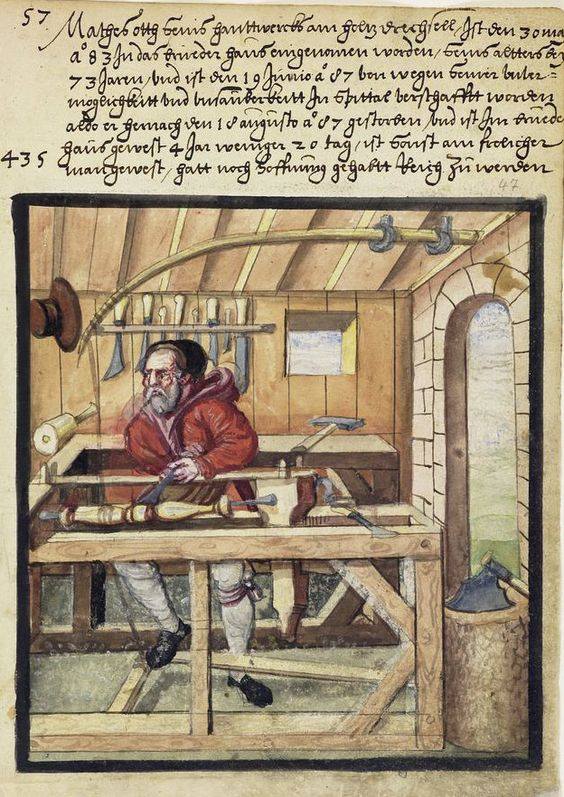 57
Mathes otth seins hanttwercks ain holtz drechsell, Ist den 30 ma
a° 83 In das brueder haus eingenomen worden, seins altters bey
73 Jaren, vnd ist den 19 Junio a° 87 von wegen seiner vnver=
möglichkitt vnd vnsauberkeitt In spittal verschafft worden
aldo er hernach den 18 augusto a° 87 gestorben, vnd ist Im bruede
435 haus gewest 4 Jar weniger 20 tag, ist sonst ain frelicher
man gewest, hatt noch hoffnung gehabtt Reich zu werden
47